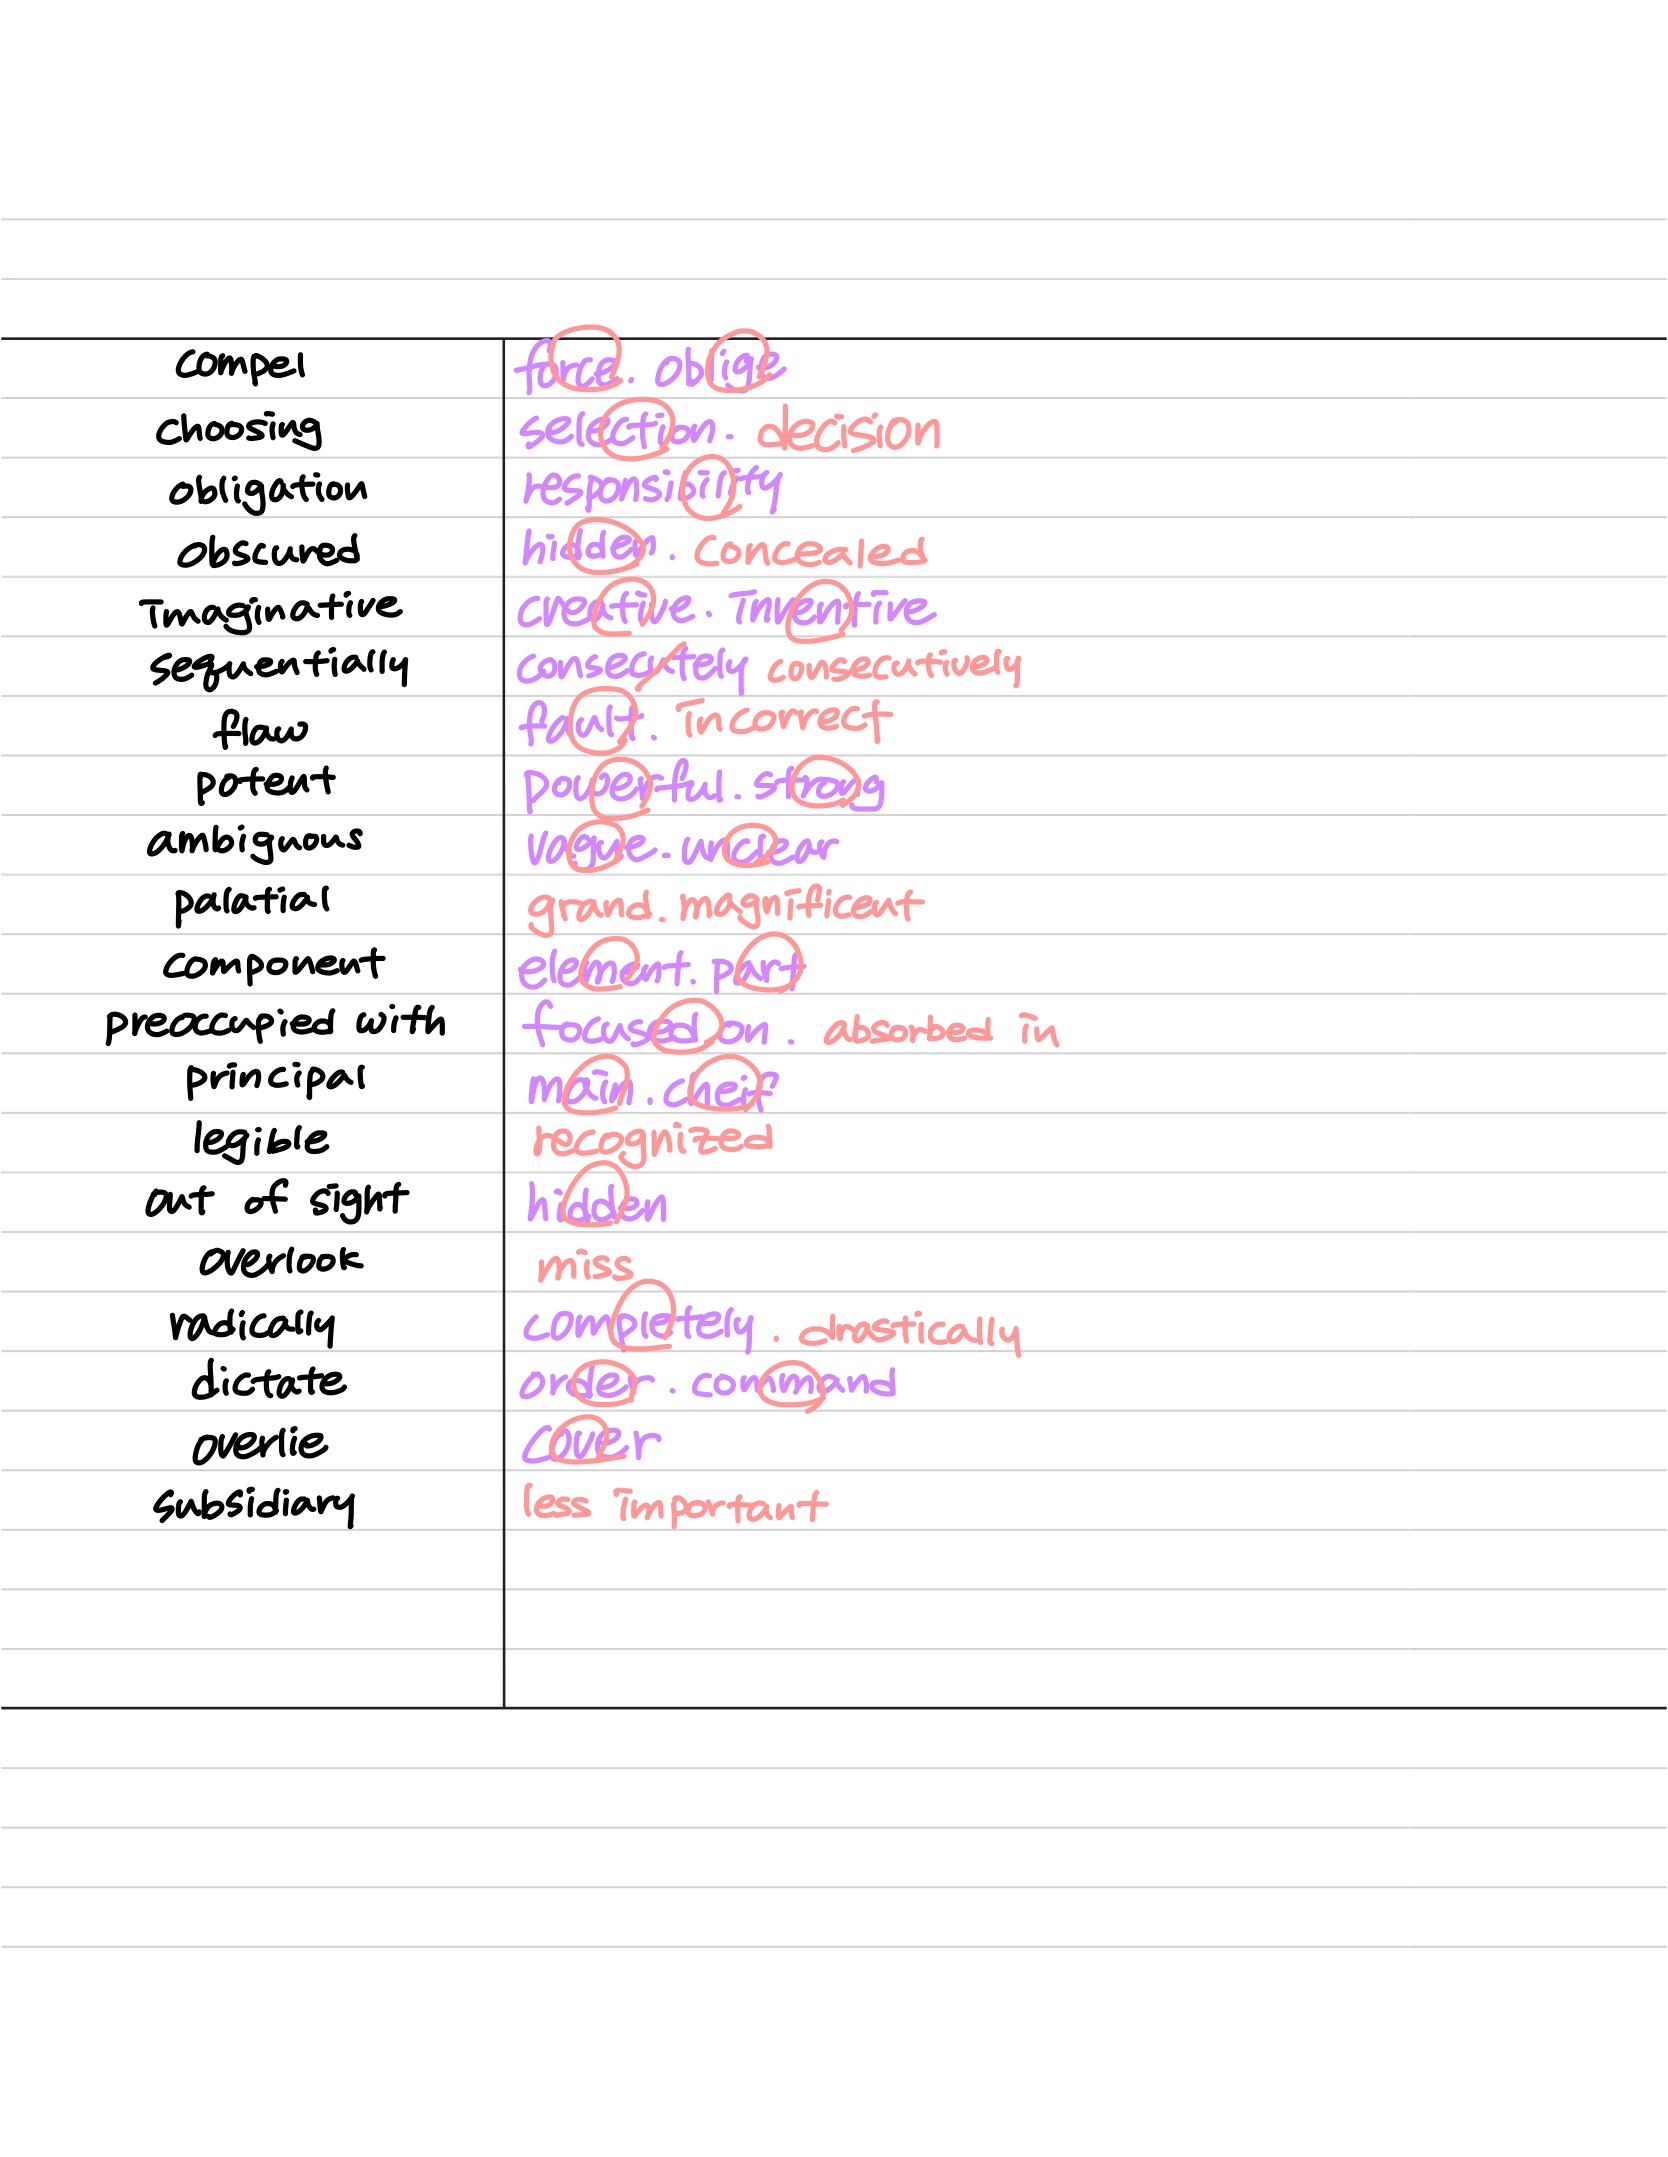 compel force. oblige
choosing selection. decision
obligation responsibility
obscured hidden. concealed
imaginative creative. inventive
sequentially consecutely consecutively
flaw fault. incorrect
potent powerful. strong
ambiguous vague. unclear
palatial grand. magnificent
component element. part
preoccupied with focused on. absorbed in
principal main. cheif
legible recognized
out of sight hidden
overlook miss
radically completely. drastically
dictate order. command
overlie cover
subsidiary less important